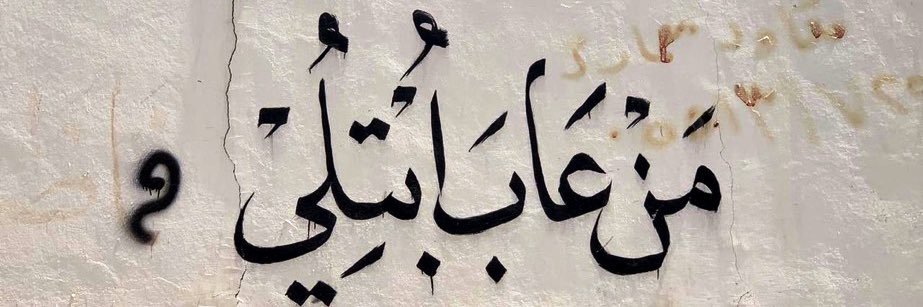 مَنْ عَابَ اُبْتُلِيْ